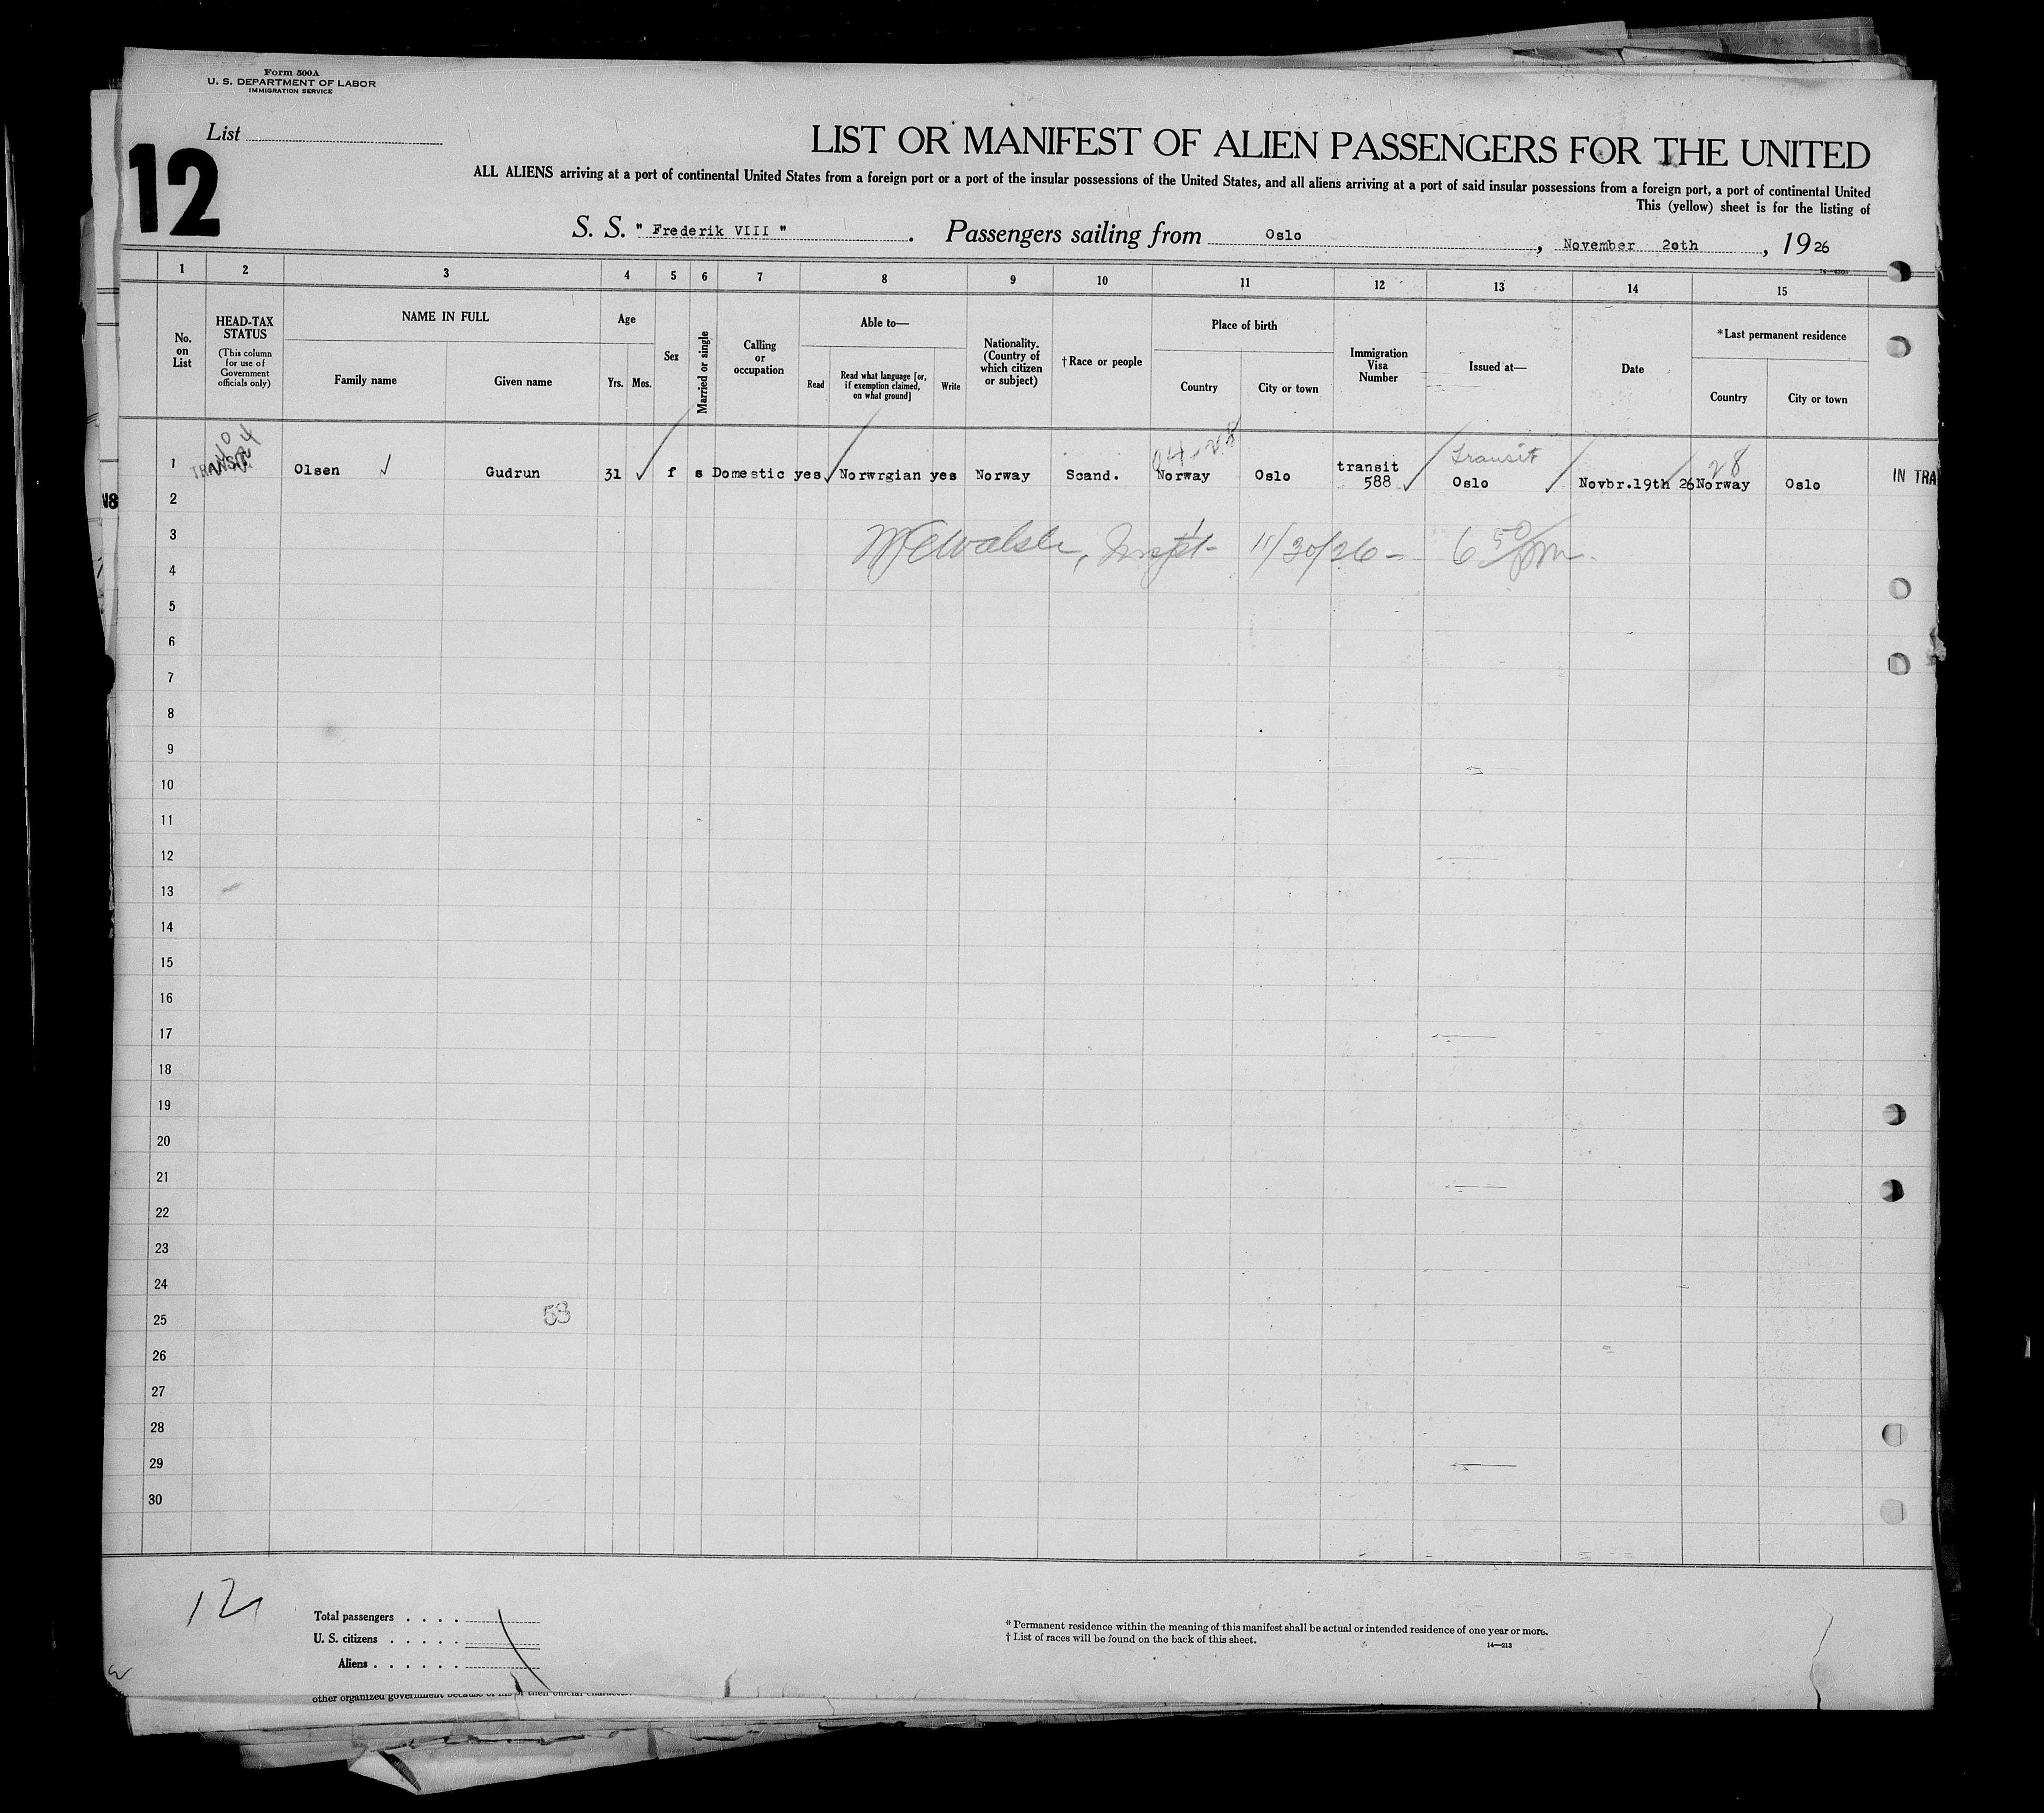 Form 500A
U. S. DEPARTMENT OF LABOR
IMMIGRATION SERVICE
List
12
LIST OR MANIFEST OF ALIEN PASSENGERS FOR THE UNITED
ALL ALIENS arriving at a port of continental United States from a foreign port or a port of the insular possessions of the United States, and all aliens arriving at a port of said insular possessions from a foreign port, a port of continental United
This (yellow) sheet is for the listing of
S. S. " Frederik VIII " . Passengers sailing from Oslo , November 20th , 19 26
1 2 3 4 5 6 7 8 9 10 11 12 13 14 15
No. on List
HEAD-TAX STATUS
(This column for use of Government officials only)
NAME IN FULL
Family name
Given name
Age
Yrs. Mos.
Sex
Married or single
Calling or occupation
Able to—
Read
Read what language [or, if exemption claimed, on what ground]
Write
Nationality. (Country of which citizen or subject)
†Race or people
Place of birth
Country
City or town
Immigration Visa Number
Issued at—
Date
*Last permanent residence
Country
City or town
04-28
transit
28
1 TRANSIT Olsen Gudrun 31 f s Domestic yes Norwrgian yes Norway Scand. Norway Oslo transit 588 Oslo Novbr.19th 26 Norway Oslo IN TRA
2
N8
3
11/30/26 - 6 50/pm.
4
5
6
7
8
9
10
11
12
13
14
15
16
17
18
19
20
21
22
23
24
25
53
26
27
28
29
30
12
Total passengers . . . .
U. S. citizens . . . . .
Aliens . . . . . .
* Permanent residence within the meaning of this manifest shall be actual or intended residence of one year or more.
† List of races will be found on the back of this sheet.
14—213
other organized government because of his or their official character